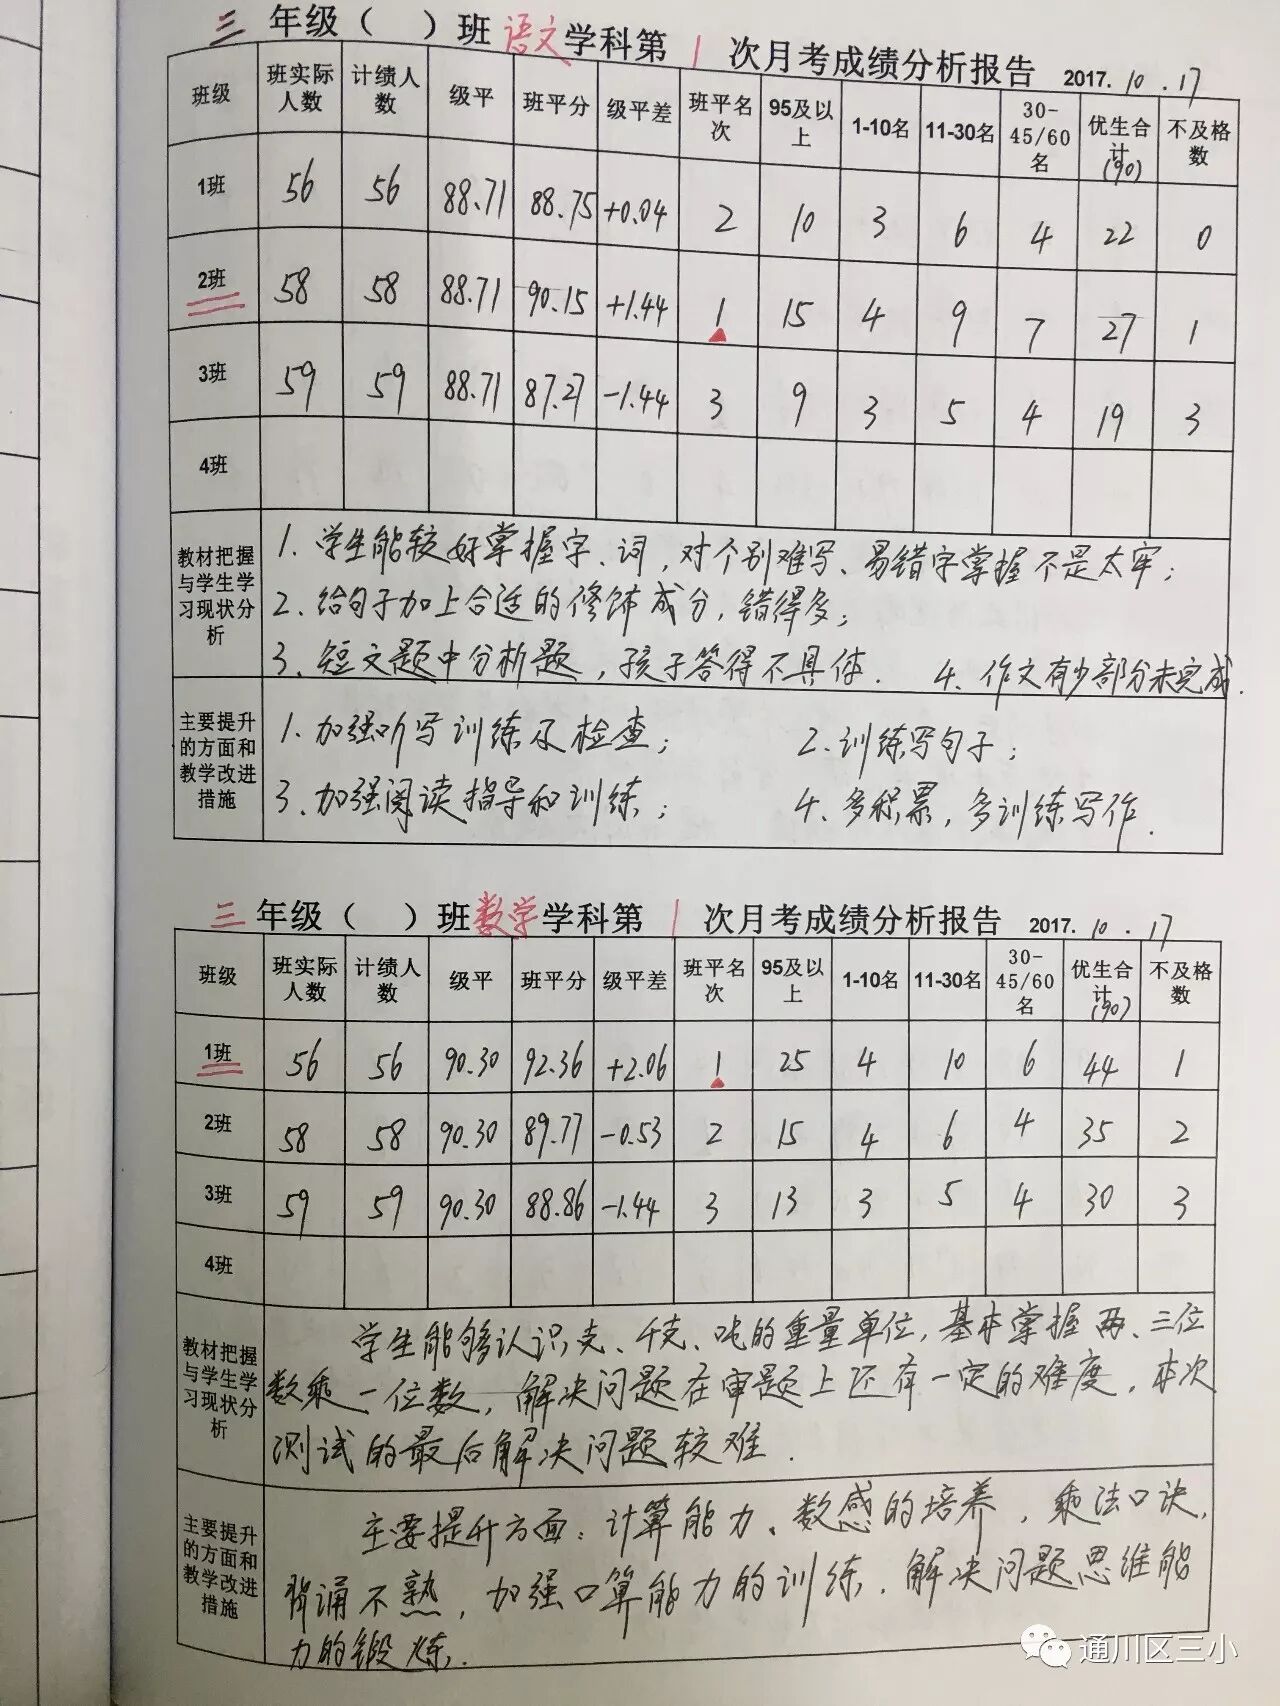 三年级（ ）班语文学科第1次月考成绩分析报告 2017.10.17
班级 班实际人数 计绩人数 级平 班平分 级平差 班平名次 95及以上 1-10名 11-30名 30-45/60名 优生合计(90) 不及格数
1班 56 56 88.71 88.75 +0.04 2 10 3 6 4 22 0
2班 58 58 88.71 90.15 +1.44 1 15 4 9 7 27 1
3班 59 59 88.71 87.27 -1.44 3 9 3 5 4 19 3
4班
教材把握与学生学习现状分析
1、学生能较好掌握字、词，对个别难写、易错字掌握不是太牢；
2、给句子加上合适的修饰成分，错得多；
3、短文题中分析题，孩子答得不具体. 4、作文有少部分未完成.
主要提升的方面和教学改进措施
1、加强听写训练及检查； 2、训练写句子；
3、加强阅读指导和训练； 4、多积累，多训练写作.
三年级（ ）班数学学科第1次月考成绩分析报告 2017.10.17
班级 班实际人数 计绩人数 级平 班平分 级平差 班平名次 95及以上 1-10名 11-30名 30-45/60名 优生合计(90) 不及格数
1班 56 56 90.30 92.36 +2.06 1 25 4 10 6 44 1
2班 58 58 90.30 89.77 -0.53 2 15 4 6 4 35 2
3班 59 59 90.30 88.86 -1.44 3 13 3 5 4 30 3
4班
教材把握与学生学习现状分析
学生能够认识克、千克、吨的重量单位，基本掌握两、三位
数乘一位数，解决问题在审题上还有一定的难度，本次
测试的最后解决问题较难.
主要提升的方面和教学改进措施
主要提升方面：计算能力、数感的培养，乘法口诀，
背诵不熟，加强口算能力的训练，解决问题思维能
力的锻炼.
通川区三小